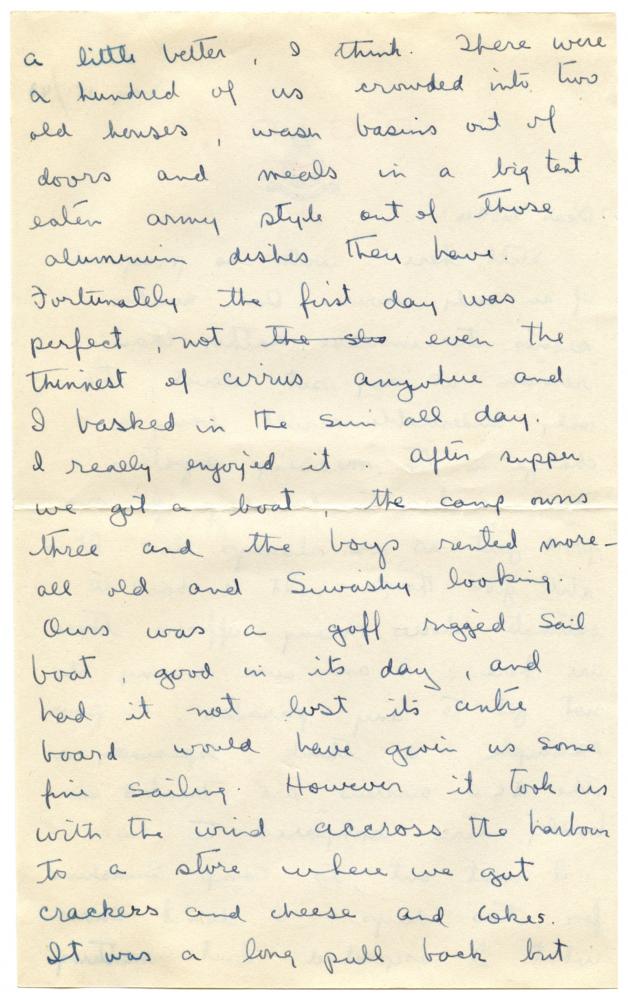 a little better, I think. There were
a hundred of us crowded into two
old houses, wash basins out of
doors and meals in a big tent
eaten army style out of those
aluminium dishes they have.
Fortunately the first day was
perfect, not the even the
thinnest of cirrus anywhere and
I basked in the sun all day.
I really enjoyed it. After supper
we got a boat, the camp owns
three and the boys rented more –
all old and Swashy looking
Ours was a gaff rigged sail
boat, good in its day, and
had it not lost its centre
board would have given us some
fine sailing. However it took us
with the wind accross the harbour
to a store where we got
crackers and cheese and cokes.
It was a long pull back but